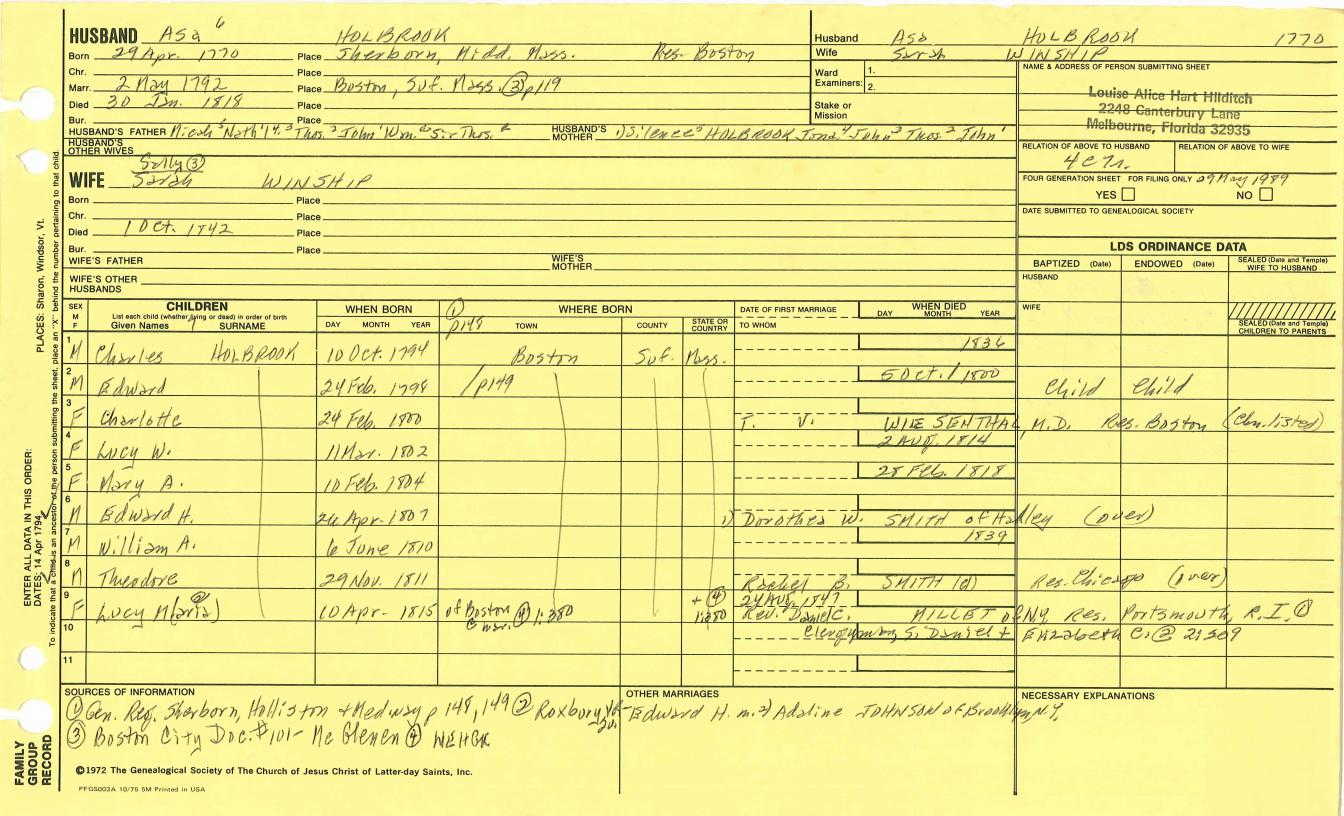 HUSBAND Asa 6 HOLBROOK
Born 29 Apr. 1770 Place Sherborn, Midd. Mass. Res. Boston
Chr. Place
Marr. 2 May 1792 Place Boston, Suf. Mass. ③ p119
Died 30 Jan. 1818 Place
Bur. Place
HUSBAND'S FATHER Micah 5 Nath'l 4, 3 Thos. 2 John 1 Wm. Sir Thos. HUSBAND'S MOTHER 1) Silence 5 HOLBROOK Jona 4 John 3 Thos 2 John 1
HUSBAND'S OTHER WIVES
Sally ③
WIFE Sarah WINSHIP
Born Place
Chr. Place
Died 1 Oct. 1842 Place
Bur. Place
WIFE'S FATHER WIFE'S MOTHER
WIFE'S OTHER HUSBANDS
Husband Asa HOLBROOK 1770
Wife Sarah WINSHIP
Ward Examiners: 1. 2.
Stake or Mission
NAME & ADDRESS OF PERSON SUBMITTING SHEET
Louise Alice Hart Hilditch
2248 Canterbury Lane
Melbourne, Florida 32935
RELATION OF ABOVE TO HUSBAND RELATION OF ABOVE TO WIFE
FOUR GENERATION SHEET FOR FILING ONLY 29 May 1989
YES NO
DATE SUBMITTED TO GENEALOGICAL SOCIETY
LDS ORDINANCE DATA
BAPTIZED (Date) ENDOWED (Date) SEALED (Date and Temple) WIFE TO HUSBAND
HUSBAND
WIFE
SEALED (Date and Temple) CHILDREN TO PARENTS
SEX M F
CHILDREN
List each child (whether living or dead) in order of birth
Given Names 7 SURNAME
WHEN BORN
DAY MONTH YEAR
① p148
WHERE BORN
TOWN COUNTY STATE OR COUNTRY
DATE OF FIRST MARRIAGE
TO WHOM
WHEN DIED
DAY MONTH YEAR
1 M Charles HOLBROOK 10 Oct. 1794 Boston Suf. Mass. 1836
2 M Edward 24 Feb. 1798 /p149 5 Oct. 1800 Child Child
3 F Charlotte 24 Feb. 1800 T. V. WIESENTHAL, M.D. Res. Boston (Chn. listed)
4 F Lucy W. 11 Mar. 1802 2 Aug. 1814
5 F Mary A. 10 Feb. 1804 28 Feb. 1818
6 M Edward H. 26 Apr. 1807 1) Dorothea W. SMITH of Hadley (over)
7 M William A. 6 June 1810 1839
8 M Theodore 29 Nov. 1811 Rachel B. SMITH (d) Res. Chicago (over)
9 F Lucy M(aria) ② 10 Apr. 1815 of Boston @ mar. ④ 1:380 + ④ 1:380 24 Aug. 1847 Rev. Daniel C. MILLET of N.Y. Res. Portsmouth, R.I. ①
10 Clergyman, S. Daniel + Elizabeth C. ② 2:509
11
SOURCES OF INFORMATION
① Gen. Reg. Sherborn, Holliston + Medway p 148, 149 ② Roxbury VR
③ Boston City Doc. #101 - Mc Glenen ④ NEHGR
OTHER MARRIAGES
Edward H. m. 2) Adaline JOHNSON of Brooklyn, N.Y.
NECESSARY EXPLANATIONS
©1972 The Genealogical Society of The Church of Jesus Christ of Latter-day Saints, Inc.
PFGS003A 10/75 5M Printed in USA
FAMILY GROUP RECORD
ENTER ALL DATA IN THIS ORDER:
DATES: 14 Apr 1794
PLACES: Sharon, Windsor, Vt.
To indicate that a child is an ancestor of the person submitting the sheet, place an "X" behind the number pertaining to that child.